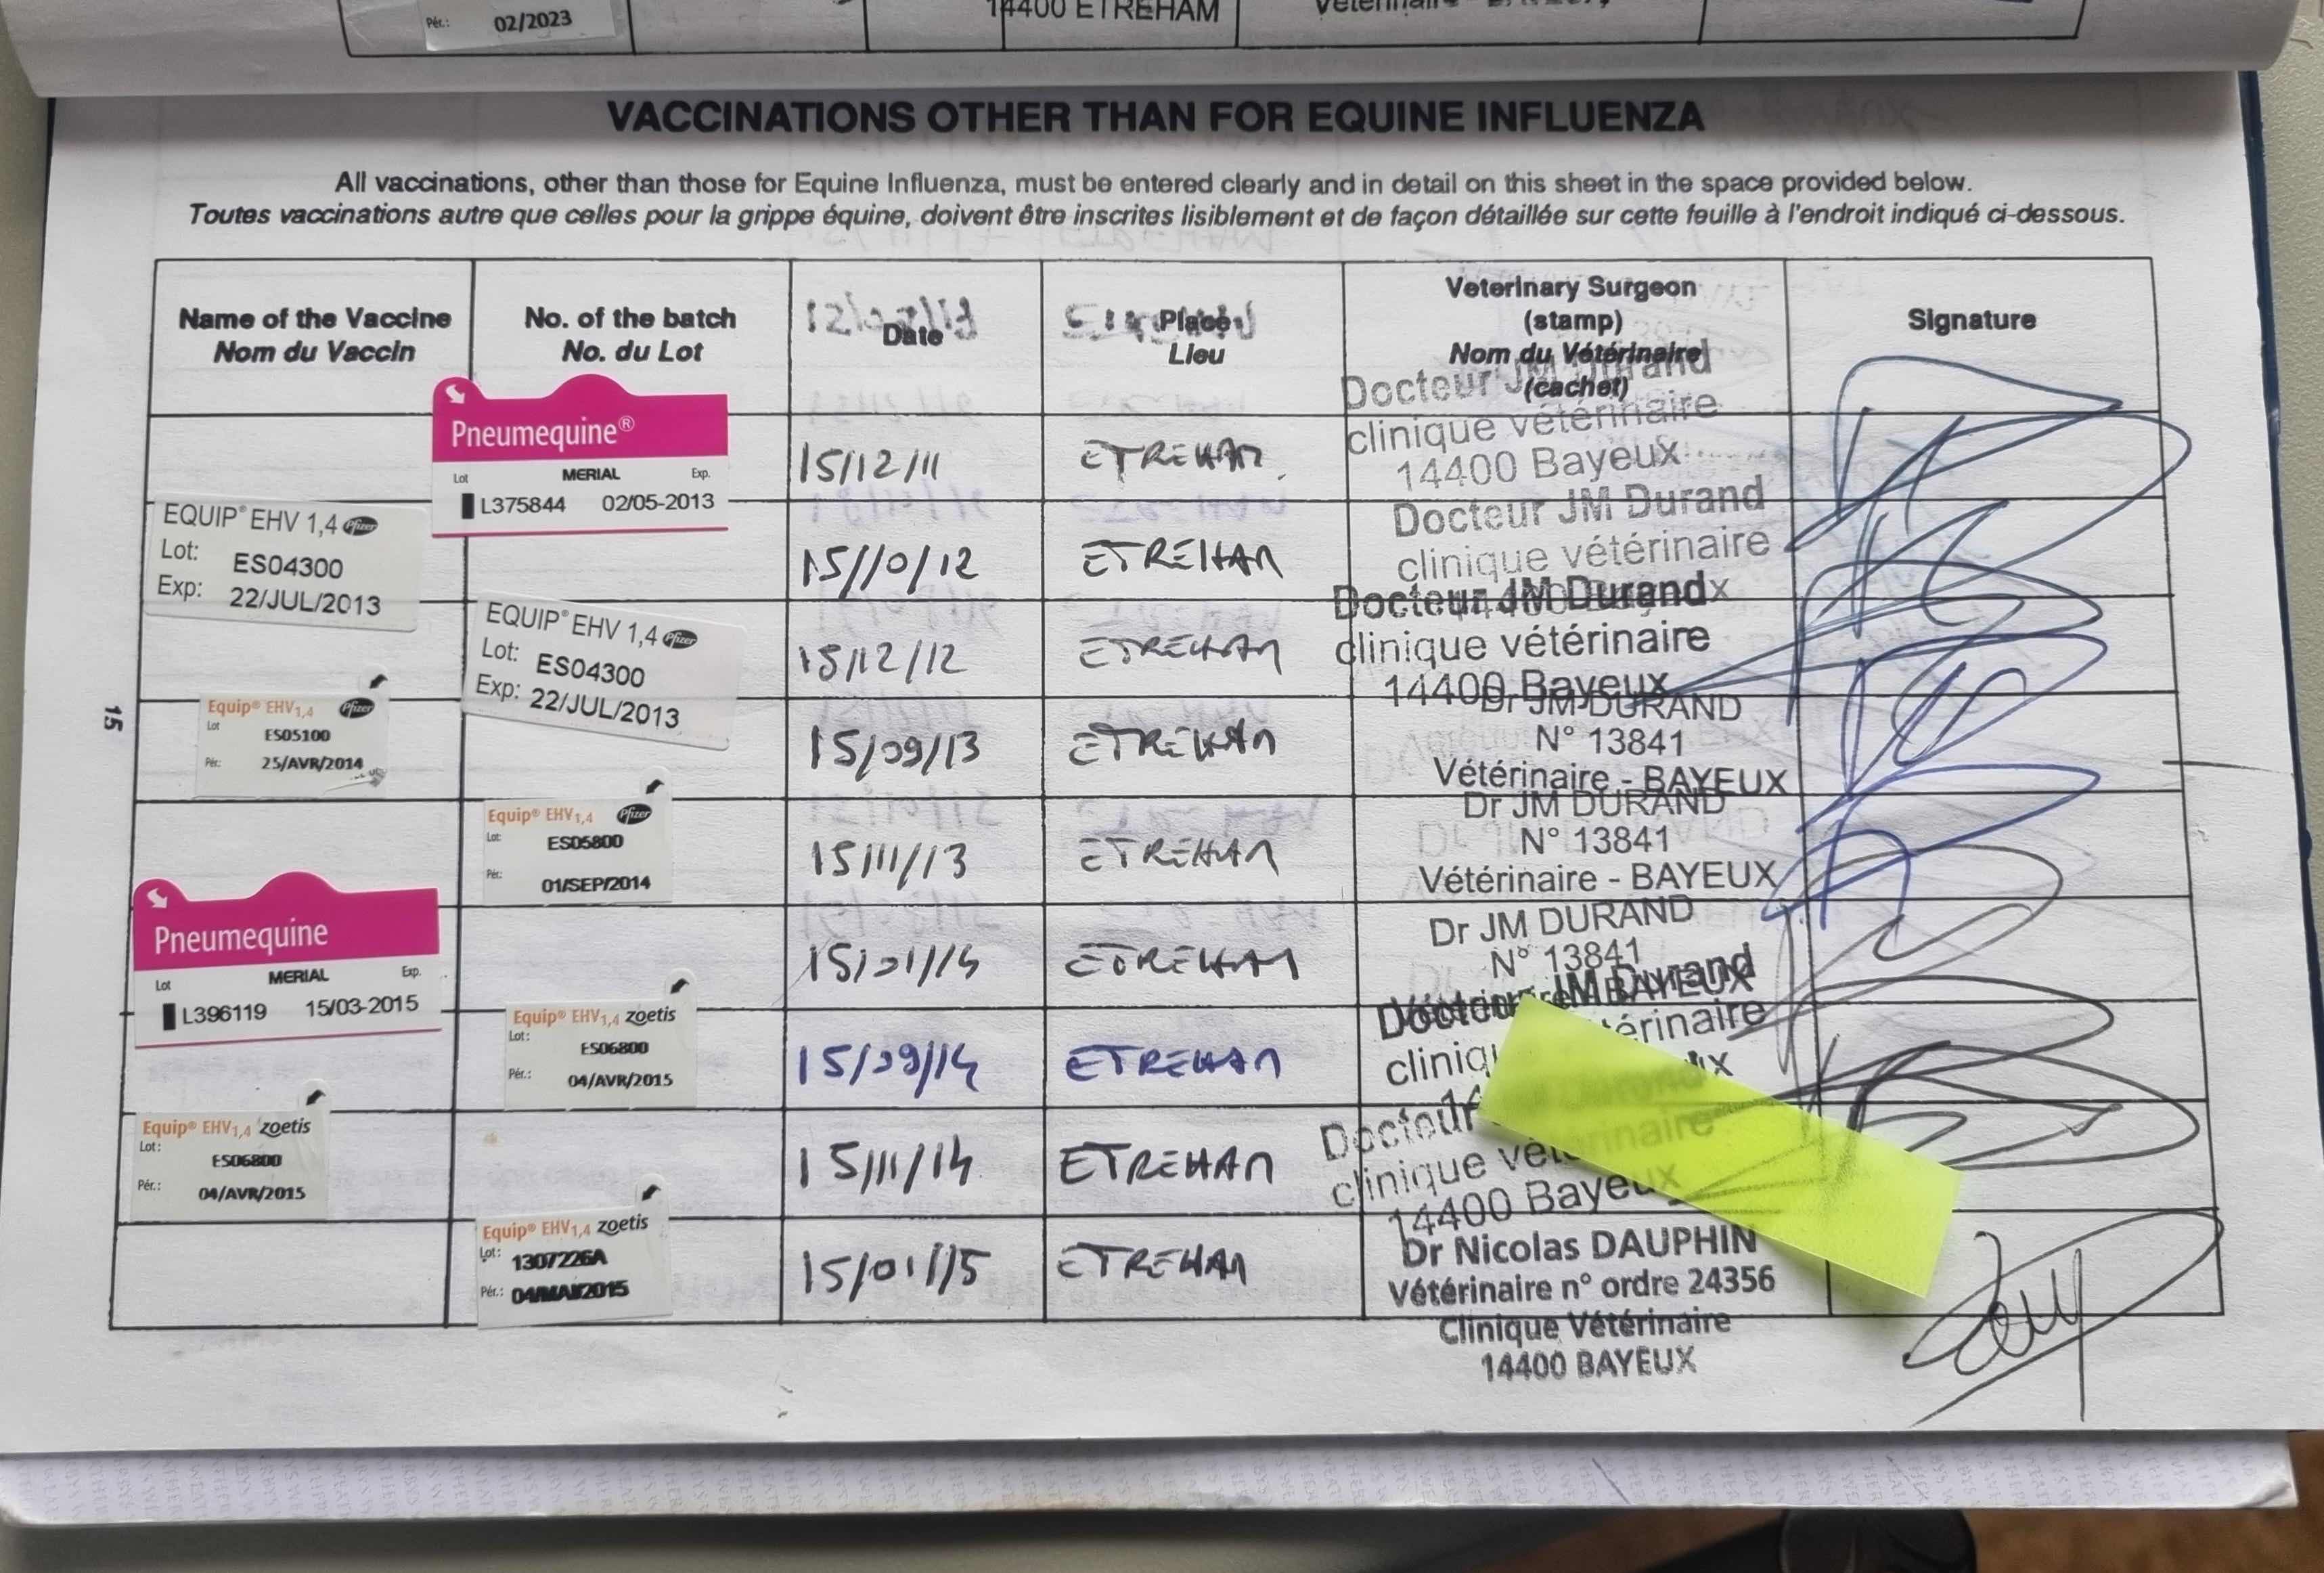 Pér.: 02/2023
14400 ETREHAM
VACCINATIONS OTHER THAN FOR EQUINE INFLUENZA
All vaccinations, other than those for Equine Influenza, must be entered clearly and in detail on this sheet in the space provided below.
Toutes vaccinations autre que celles pour la grippe équine, doivent être inscrites lisiblement et de façon détaillée sur cette feuille à l'endroit indiqué ci-dessous.
Name of the Vaccine
Nom du Vaccin
No. of the batch
No. du Lot
Date
Place
Lieu
Veterinary Surgeon
(stamp)
Nom du Vétérinaire
(cachet)
Signature
Pneumequine®
Lot MERIAL Exp.
L375844 02/05-2013
15/12/11
ETREHAM
Docteur JM Durand
clinique vétérinaire
14400 Bayeux
EQUIP® EHV 1,4 Pfizer
Lot: ES04300
Exp: 22/JUL/2013
15/10/12
ETREHAM
Docteur JM Durand
clinique vétérinaire
EQUIP® EHV 1,4 Pfizer
Lot: ES04300
Exp: 22/JUL/2013
15/12/12
ETREHAM
Docteur JM Durand
clinique vétérinaire
14400 Bayeux
Equip® EHV1,4 Pfizer
Lot
ES05100
Pér: 25/AVR/2014
15/09/13
ETREHAM
Dr JM DURAND
N° 13841
Vétérinaire - BAYEUX
Equip® EHV1,4 Pfizer
Lot: ES05800
Pér: 01/SEP/2014
15/11/13
ETREHAM
Dr JM DURAND
N° 13841
Vétérinaire - BAYEUX
Pneumequine
Lot MERIAL Exp.
L396119 15/03-2015
15/01/14
ETREHAM
Dr JM DURAND
N° 13841
BAYEUX
Equip® EHV1,4 zoetis
Lot:
ES06800
Pér.: 04/AVR/2015
15/09/14
ETREHAM
JM Durand
Equip® EHV1,4 zoetis
Lot:
ES06800
Pér.: 04/AVR/2015
15/11/14
ETREHAM
Docteur
clinique
14400 Bayeux
Equip® EHV1,4 zoetis
Lot: 1307226A
Pér.: 04/MAI/2015
15/01/15
ETREHAM
Dr Nicolas DAUPHIN
Vétérinaire n° ordre 24356
Clinique Vétérinaire
14400 BAYEUX
15